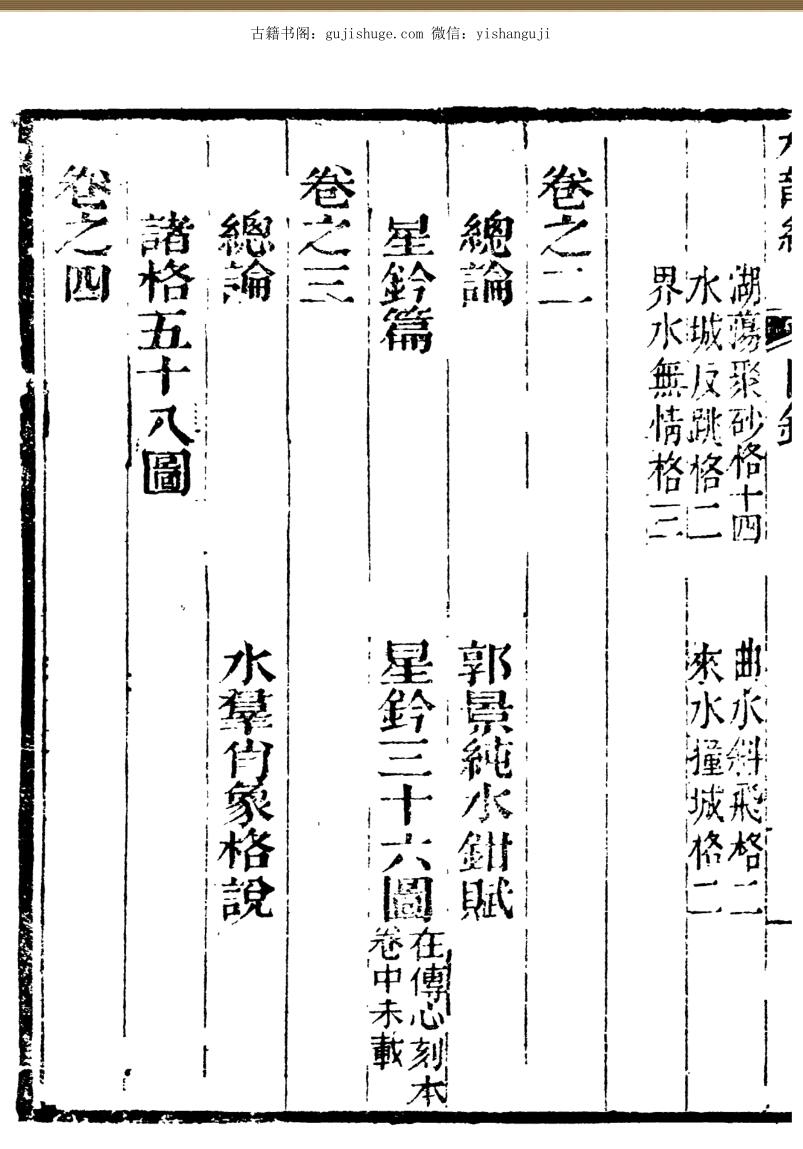 古籍书阁：gujishuge.com 微信：yishanguji
湖蕩聚砂格十四
曲水斜飛格二
水城反跳格二
來水撞城格二
界水無情格三
卷之二
總論
郭景純水鉗賦
星鈐篇
星鈐三十六圖
在傳心刻本
卷中未載
卷之三
總論
水羣肖象格說
諸格五十八圖
卷之四